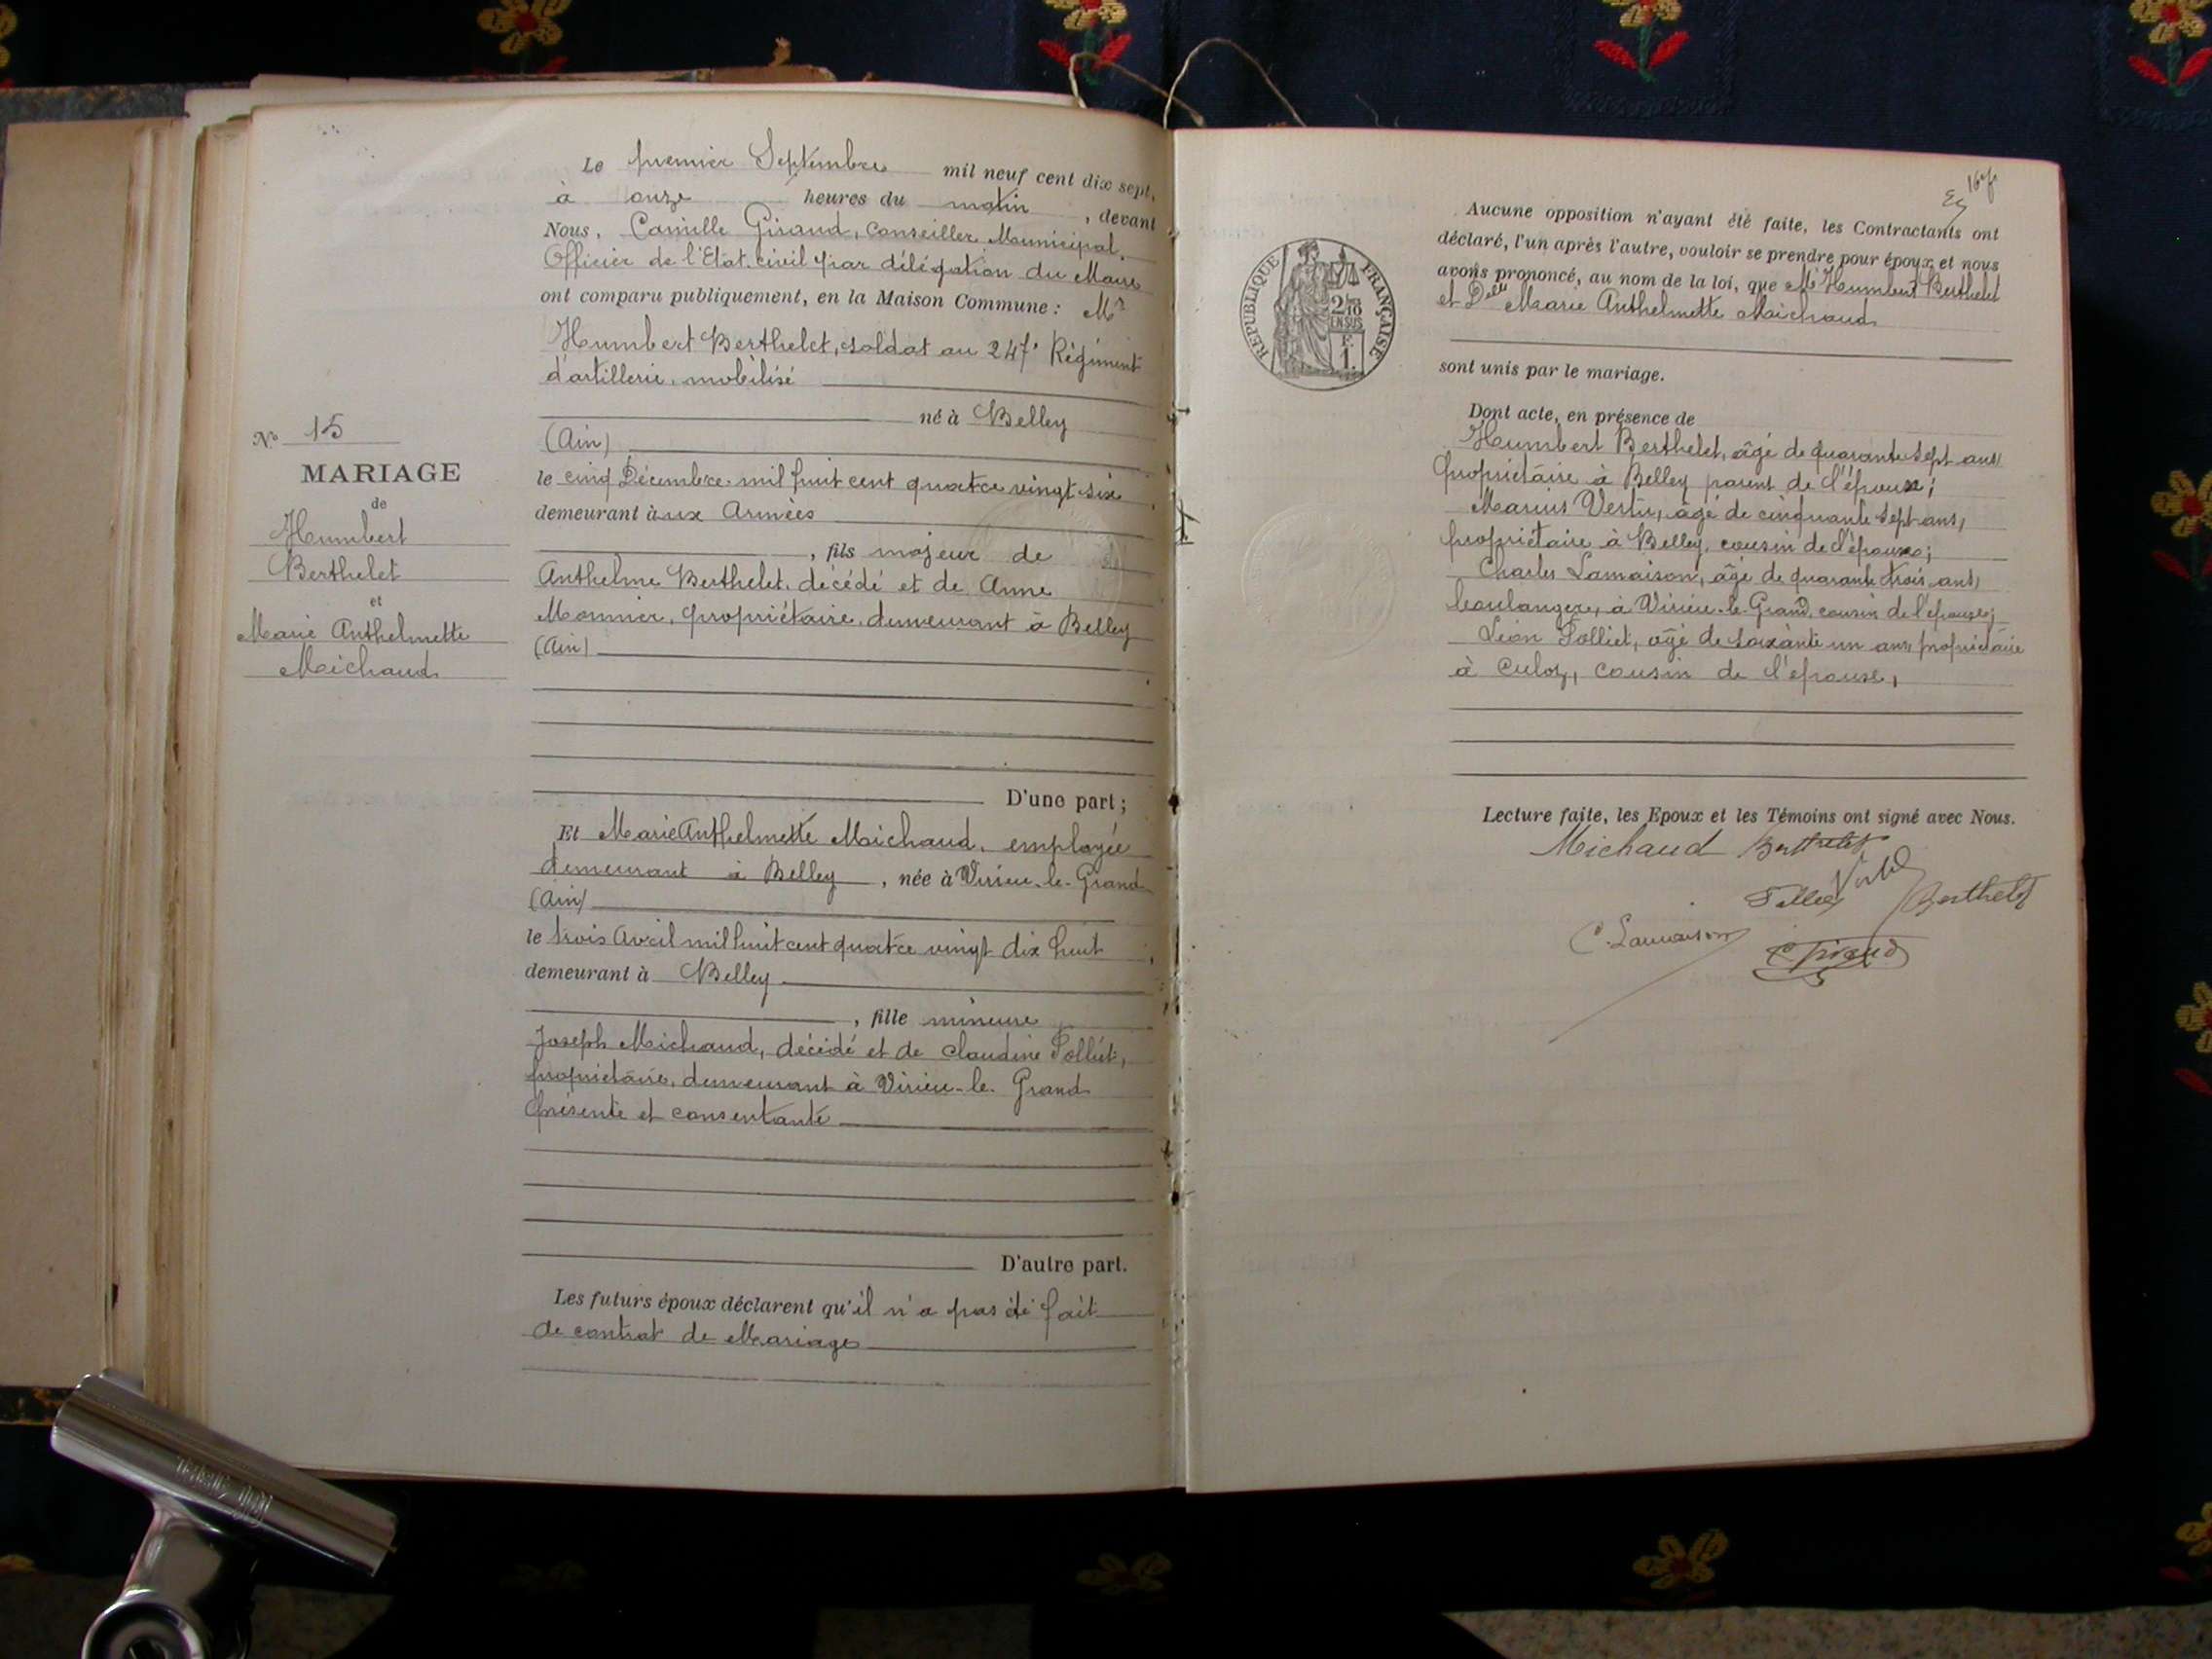 N° 15
MARIAGE
de
Humbert
Berthelet
et
Marie Anthelmette
Michaud
Le premier Septembre mil neuf cent dix sept,
à onze heures du matin, devant
Nous, Camille Giraud, Conseiller Municipal.
Officier de l'Etat civil par délégation du Maire
ont comparu publiquement, en la Maison Commune : Mr
Humbert Berthelet, soldat au 247e Régiment
d'artillerie, mobilisé
né à Belley
(Ain)
le cinq Décembre mil huit cent quatre vingt six
demeurant à ux Armées
, fils majeur de
Anthelme Berthelet, décédé et de Anne
Monnier, propriétaire, demeurant à Belley
(Ain)
D'une part ;
Et Marie Anthelmette Michaud, employée
demeurant à Belley, née à Virieu-le-Grand
(Ain)
le trois Avril mil huit cent quatre vingt dix huit
demeurant à Belley
, fille mineure
Joseph Michaud, décédé et de Claudine Tolliet,
propriétaire, demeurant à Virieu-le-Grand
présente et consentante
D'autre part.
Les futurs époux déclarent qu'il n'a pas été fait
de contrat de Mariage
REPUBLIQUE FRANÇAISE
2/10
EN SUS
F.
1.
Aucune opposition n'ayant été faite, les Contractants ont
déclaré, l'un après l'autre, vouloir se prendre pour époux et nous
avons prononcé, au nom de la loi, que Mr Humbert Berthelet
et Delle Marie Anthelmette Michaud
sont unis par le mariage.
Dont acte, en présence de
Humbert Berthelet, âgé de quarante sept ans,
propriétaire à Belley parent de l'époux ;
Marius Vertu, âgé de cinquante sept ans,
propriétaire à Belley, cousin de l'époux ;
Charles Lamaison, âgé de quarante trois ans,
boulanger, à Virieu-le-Grand, cousin de l'épouse ;
Léon Tolliet, âgé de soixante un ans, propriétaire
à Culoz, cousin de l'épouse,
Lecture faite, les Epoux et les Témoins ont signé avec Nous.
Michaud Berthelet
Berthelet
C. Lamaison C. Giraud